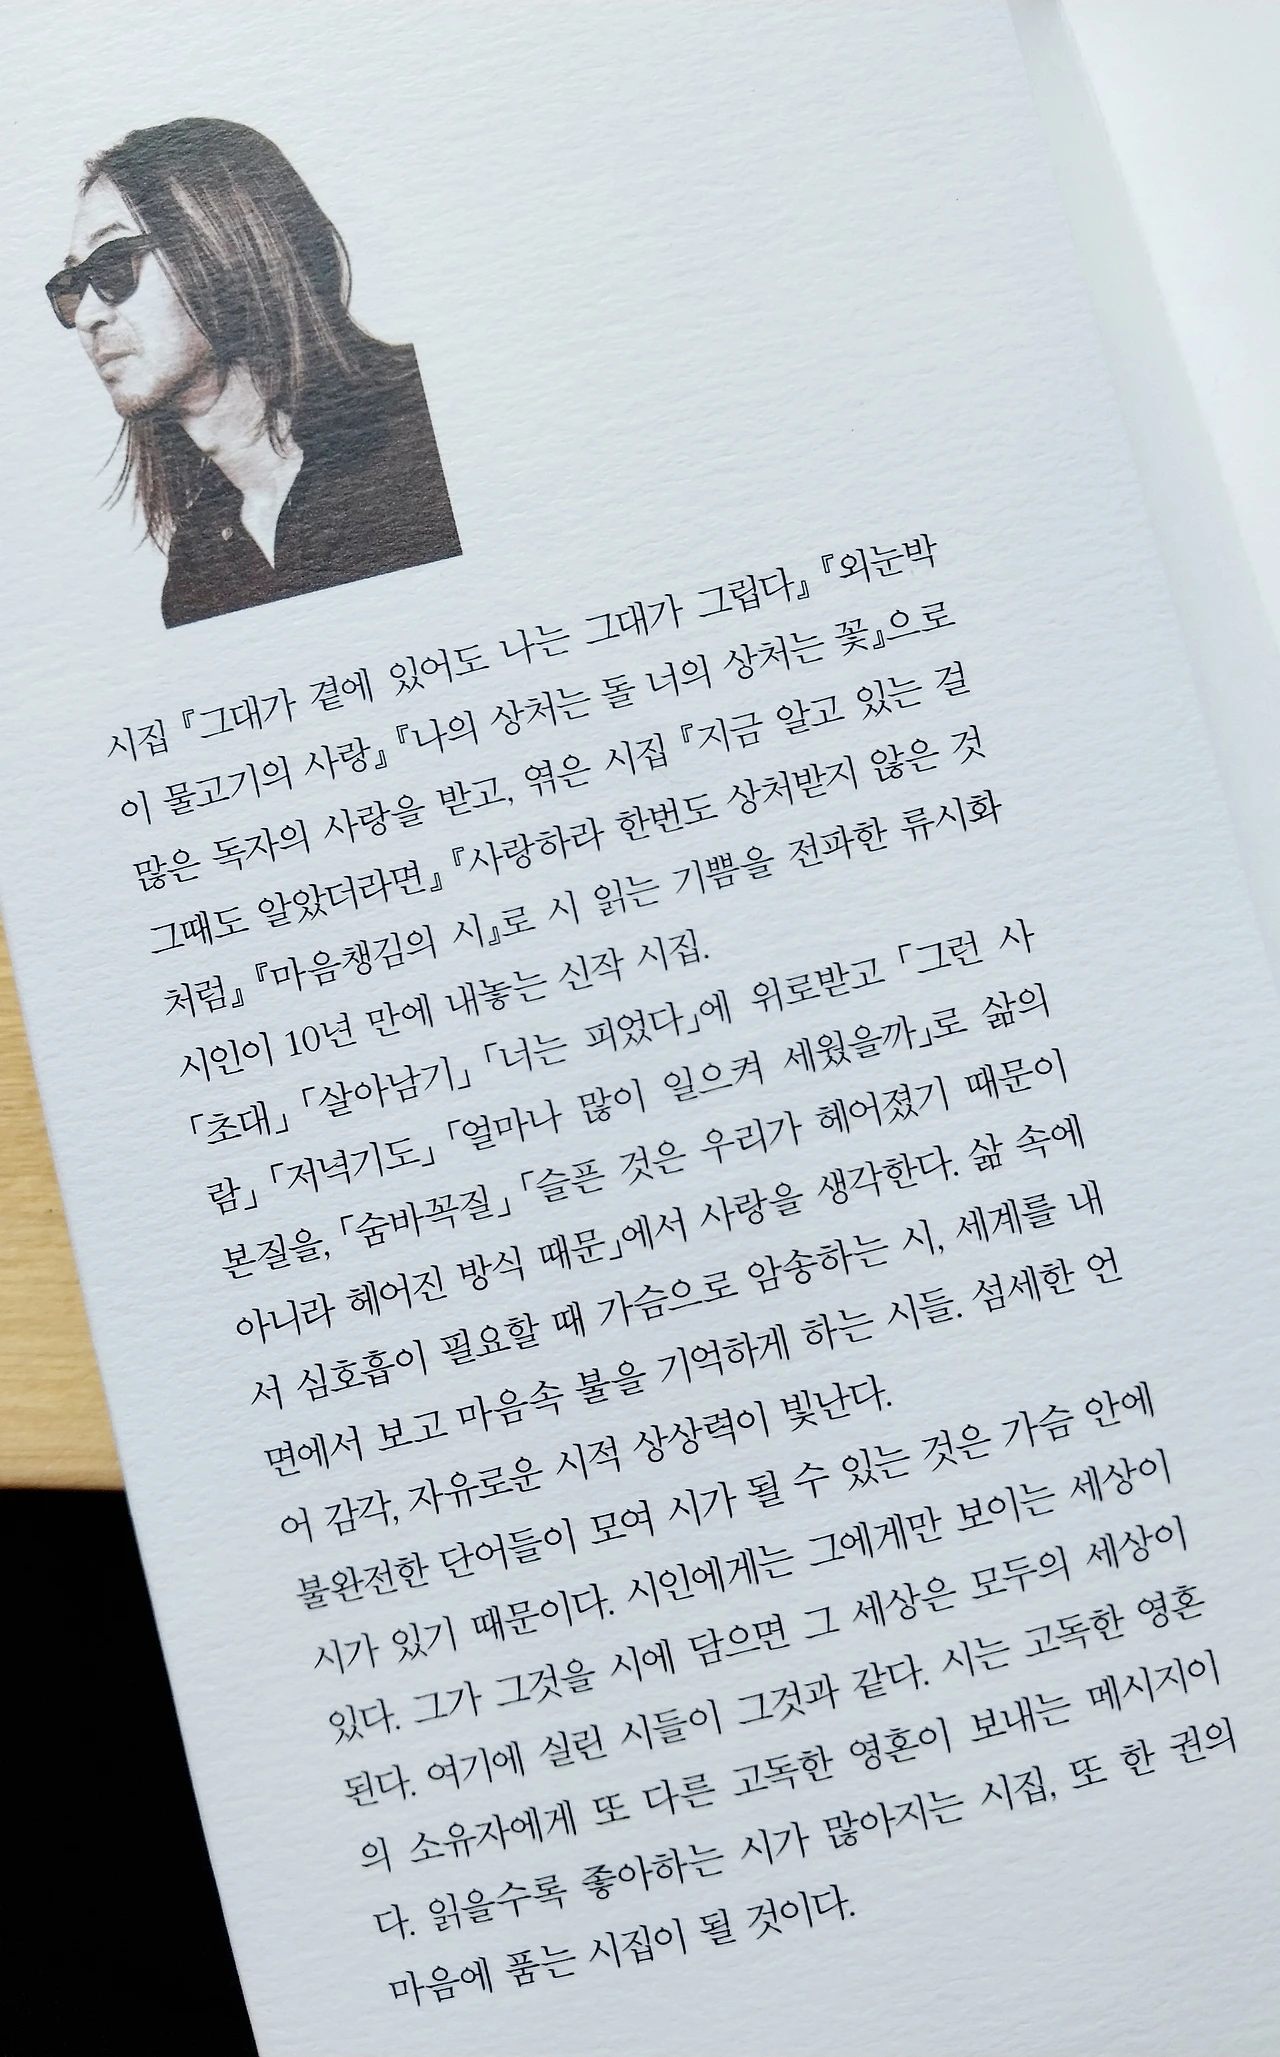 시집 『그대가 곁에 있어도 나는 그대가 그립다』 『외눈박
이 물고기의 사랑』 『나의 상처는 돌 너의 상처는 꽃』으로
많은 독자의 사랑을 받고, 엮은 시집 『지금 알고 있는 걸
그때도 알았더라면』 『사랑하라 한번도 상처받지 않은 것
처럼』 『마음챙김의 시』로 시 읽는 기쁨을 전파한 류시화
시인이 10년 만에 내놓는 신작 시집.
「초대」 「살아남기」 「너는 피었다」에 위로받고 「그런 사
람」 「저녁기도」 「얼마나 많이 일으켜 세웠을까」로 삶의
본질을, 「숨바꼭질」 「슬픈 것은 우리가 헤어졌기 때문이
아니라 헤어진 방식 때문」에서 사랑을 생각한다. 삶 속에
서 심호흡이 필요할 때 가슴으로 암송하는 시, 세계를 내
면에서 보고 마음속 불을 기억하게 하는 시들. 섬세한 언
어 감각, 자유로운 시적 상상력이 빛난다.
불완전한 단어들이 모여 시가 될 수 있는 것은 가슴 안에
시가 있기 때문이다. 시인에게는 그에게만 보이는 세상이
있다. 그가 그것을 시에 담으면 그 세상은 모두의 세상이
된다. 여기에 실린 시들이 그것과 같다. 시는 고독한 영혼
의 소유자에게 또 다른 고독한 영혼이 보내는 메시지이
다. 읽을수록 좋아하는 시가 많아지는 시집, 또 한 권의
마음에 품는 시집이 될 것이다.